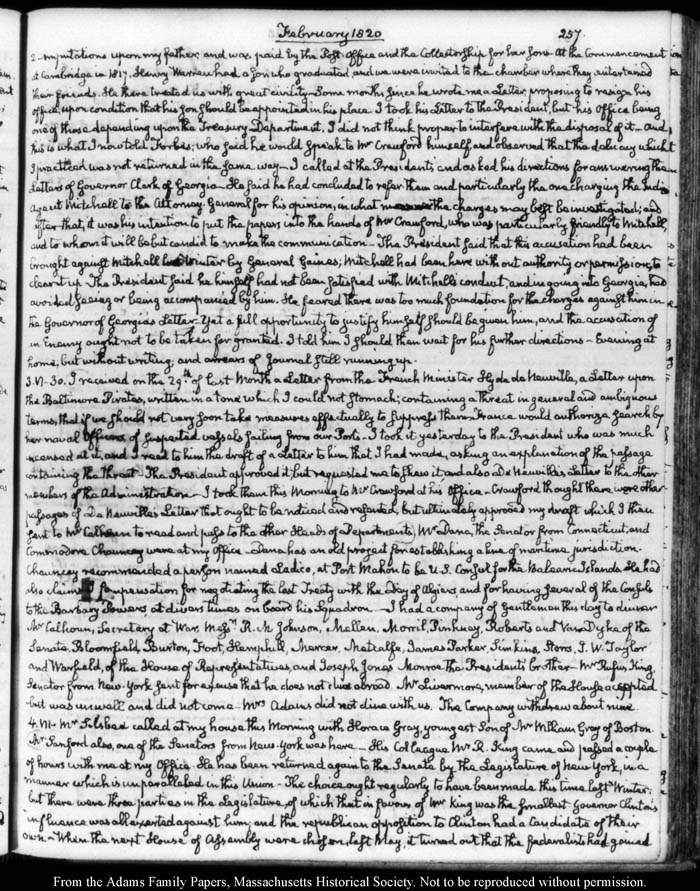 February 1820
257.
2 - imputations upon my father, and was paid by the Post Office and the Collectorship for her Sons. At the Commencement
at Cambridge in 1817. Henry Warren had a Son who graduated, and we were invited to the chamber where they entertained
their friends. He there treated us with great civility. Some months since he wrote me a Letter, proposing to resign his
Office, upon condition that his Son should be appointed in his place. I took his Letter to the President, but his Office being
one of those depending upon the Treasury Department, I did not think proper to interfere with the disposal of it - and
this is what I now told Forbes; who said he would speak to Mr Crawford himself and observed that the delicacy which
I practised was not returned in the same way - I called at the President's and asked his directions for answering the
Letters of Governor Clark of Georgia. He said he had concluded to refer them and particularly the one charging the Indian
Agent Mitchell to the Attorney General for his opinion, in what the charges may best be investigated; and
after that, it was his intention to put the papers into the hands of Mr Crawford, who was particularly friendly to Mitchell,
and to whom it will be but candid to make the communication - The President said that this accusation had been
brought against Mitchell last Winter by General Gaines; Mitchell had been here without authority or permission, to
clear it up. The President said he himself had not been satisfied with Mitchell's conduct, and in going into Georgia, had
avoided seeing or being accompanied by him. He feared there was too much foundation for the charges against him in
the Governor of Georgia's Letter. Yet a full opportunity to justify himself should be given him, and the accusation of
an Enemy ought not to be taken for granted. I told him I should then wait for his further directions - Evening at
home, but without writing; and arrears of Journal still running up.
3. VI. 30. I received on the 29th of last Month a Letter from the French Minister Hyde de Neuville, a Letter upon
the Baltimore Pirates, written in a tone which I could not stomach; containing a threat in general and ambiguous
terms, that if we should not very soon take measures effectually to suppress them France would authorize search by
her naval Officers of suspected vessels sailing from our Ports - I took it yesterday to the President who was much
incensed at it, and I read to him the draft of a Letter to him that I had made, asking an explanation of the passage
containing the threat - The President approved it, but requested me to shew it and also De Neuville's Letter to the other
members of the Administration - I took them this Morning to Mr Crawford at his Office - Crawford thought there were other
passages of De Neuville's Letter that ought to be noticed and resented, but ultimately approved my draft which I then
sent to Mr Calhoun to read and pass to the other Heads of Departments, Mr Dana, the Senator from Connecticut, and
Commodore Chauncey were at my Office - Dana has an old project for establishing a line of maritime jurisdiction.
Chauncey recommended a person named Ladico, at Port Mahon to be U.S. Consul for the Balearic Islands. He had
also claims compensation for negotiating the last Treaty with the Dey of Algiers and for having several of the Consuls
to the Barbary Powers at divers times on board his Squadron - I had a company of Gentlemen this day to dinner
Mr Calhoun, Secretary at War, Messrs R. M. Johnson, Mellen, Morril, Pinkney, Roberts and Van Dyke of the
Senate, Bloomfield, Burton, Foot, Hemphill, Mercer, Metcalfe, James Parker, Simkins, Storrs, J. W. Taylor
and Warfield, of the House of Representatives, and Joseph Jones Monroe the President's brother - Mr Rufus King,
Senator from New-York sent for excuse that he does not dine abroad. Mr Livermore, member of the House accepted
but was unwell and did not come. Mrs Adams did not dine with us. The Company withdrew about nine.
4. VII - Mr Silsbee called at my house this Morning with Horace Gray, youngest Son of Mr William Gray of Boston.
Mr Sanford also, one of the Senators from New-York was here - His Colleague Mr R. King came and passed a couple
of hours with me at my Office. He has been returned again to the Senate by the Legislature of New York, in a
manner which is unparalleled in this Union - The choice ought regularly to have been made this time last Winter;
but there were three parties in the Legislature, of which that in favour of Mr King was the smallest. Governor Clinton's
influence was all exerted against him, and the republican opposition to Clinton had a Candidate of their
own - When the next House of Assembly were chosen, last May, it turned out that the federalists had gained
From the Adams Family Papers, Massachusetts Historical Society. Not to be reproduced without permission.